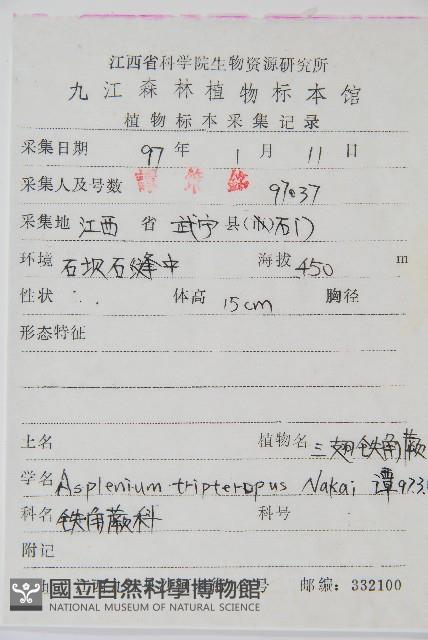 江西省科学院生物资源研究所
九江森林植物标本馆
植物标本采集记录
采集日期 97 年 1 月 11 日
采集人及号数 譚策銘 97037
采集地 江西 省 武宁 县(市)石门
环境 石坎石缝中 海拔 450 m
性状 体高 15cm 胸径
形态特征
土名 植物名 三翅铁角蕨
学名 Asplenium tripteropus Nakai 譚973.
科名 铁角蕨科 科号
附记
邮编: 332100
國立自然科學博物館
NATIONAL MUSEUM OF NATURAL SCIENCE